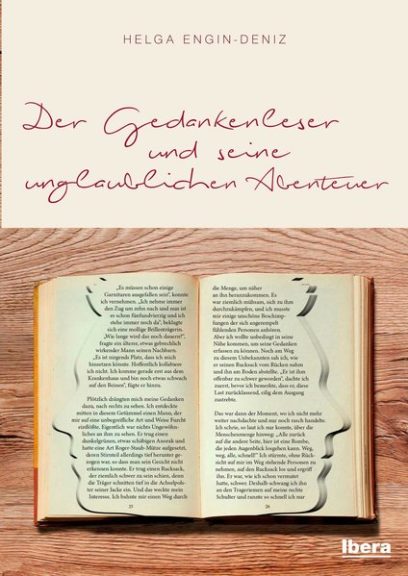 HELGA ENGIN-DENIZ
Der Gedankenleser
und seine
unglaublichen Abenteuer
„Es müssen schon einige
Garnituren ausgefallen sein“, konnte
ich vernehmen. „Ich nehme immer
den Zug um zehn nach und nun ist
es schon fünfundvierzig und ich
stehe immer noch da“, beklagte
sich eine mollige Brillenträgerin.
„Wie lange wird das noch dauern?“,
fragte ein älterer, etwas gebrechlich
wirkender Mann seinen Nachbarn.
„Es ist nirgends Platz, dass ich mich
hinsetzen könnte. Hoffentlich kollabiere
ich nicht. Ich komme gerade erst aus dem
Krankenhaus und bin noch etwas schwach
auf den Beinen“, fügte er hinzu.
Plötzlich drängten mich meine Gedanken
dazu, nach rechts zu sehen. Ich entdeckte
mitten in diesem Getümmel einen Mann, der
mir auf eine unbegreifliche Art und Weise Furcht
einflößte. Eigentlich war nichts Ungewöhn-
liches an ihm zu sehen. Er trug einen
dunkelgrünen, etwas schäbigen Anorak und
hatte eine Art Roger-Staub-Mütze aufgesetzt,
deren Stirnteil allerdings tief herunter ge-
zogen war, so dass man sein Gesicht nicht
erkennen konnte. Er trug einen Rucksack,
der ziemlich schwer zu sein schien, denn
die Träger schnitten tief in die Achselpols-
ter seiner Jacke ein. Und das weckte mein
Interesse. Ich bahnte mir einen Weg durch
25
die Menge, um näher
an ihn heranzukommen. Es
war ziemlich mühsam, sich zu ihm
durchzukämpfen, und ich musste
mir einige unschöne Beschimp-
fungen der sich angerempelt
fühlenden Personen anhören.
Aber ich wollte unbedingt in seine
Nähe kommen, um seine Gedanken
erfassen zu können. Noch am Weg
zu diesem Unbekannten sah ich, wie
er seinen Rucksack vom Rücken nahm
und ihn am Boden abstellte. „Er ist ihm
offenbar zu schwer geworden“, dachte ich
zuerst, bevor ich bemerkte, dass er, diese
Last zurücklassend, eilig dem Ausgang
zustrebte.
Das war dann der Moment, wo ich nicht mehr
weiter nachdachte und nur noch rasch handelte.
Ich schrie, so laut ich nur konnte, über die
Menschenmenge hinweg: „Alle zurück
auf die andere Seite, hier ist eine Bombe,
die jeden Augenblick losgehen kann. Weg,
weg, alle, schnell!“ Ich stürmte, ohne Rück-
sicht auf mir im Weg stehende Personen zu
nehmen, auf den Rucksack los und ergriff
ihn. Er war, wie ich schon vermutet
hatte, schwer. Deshalb schwang ich ihn
an den Tragriemen auf meine rechte
Schulter und rannte so schnell ich nur
26
Ibera